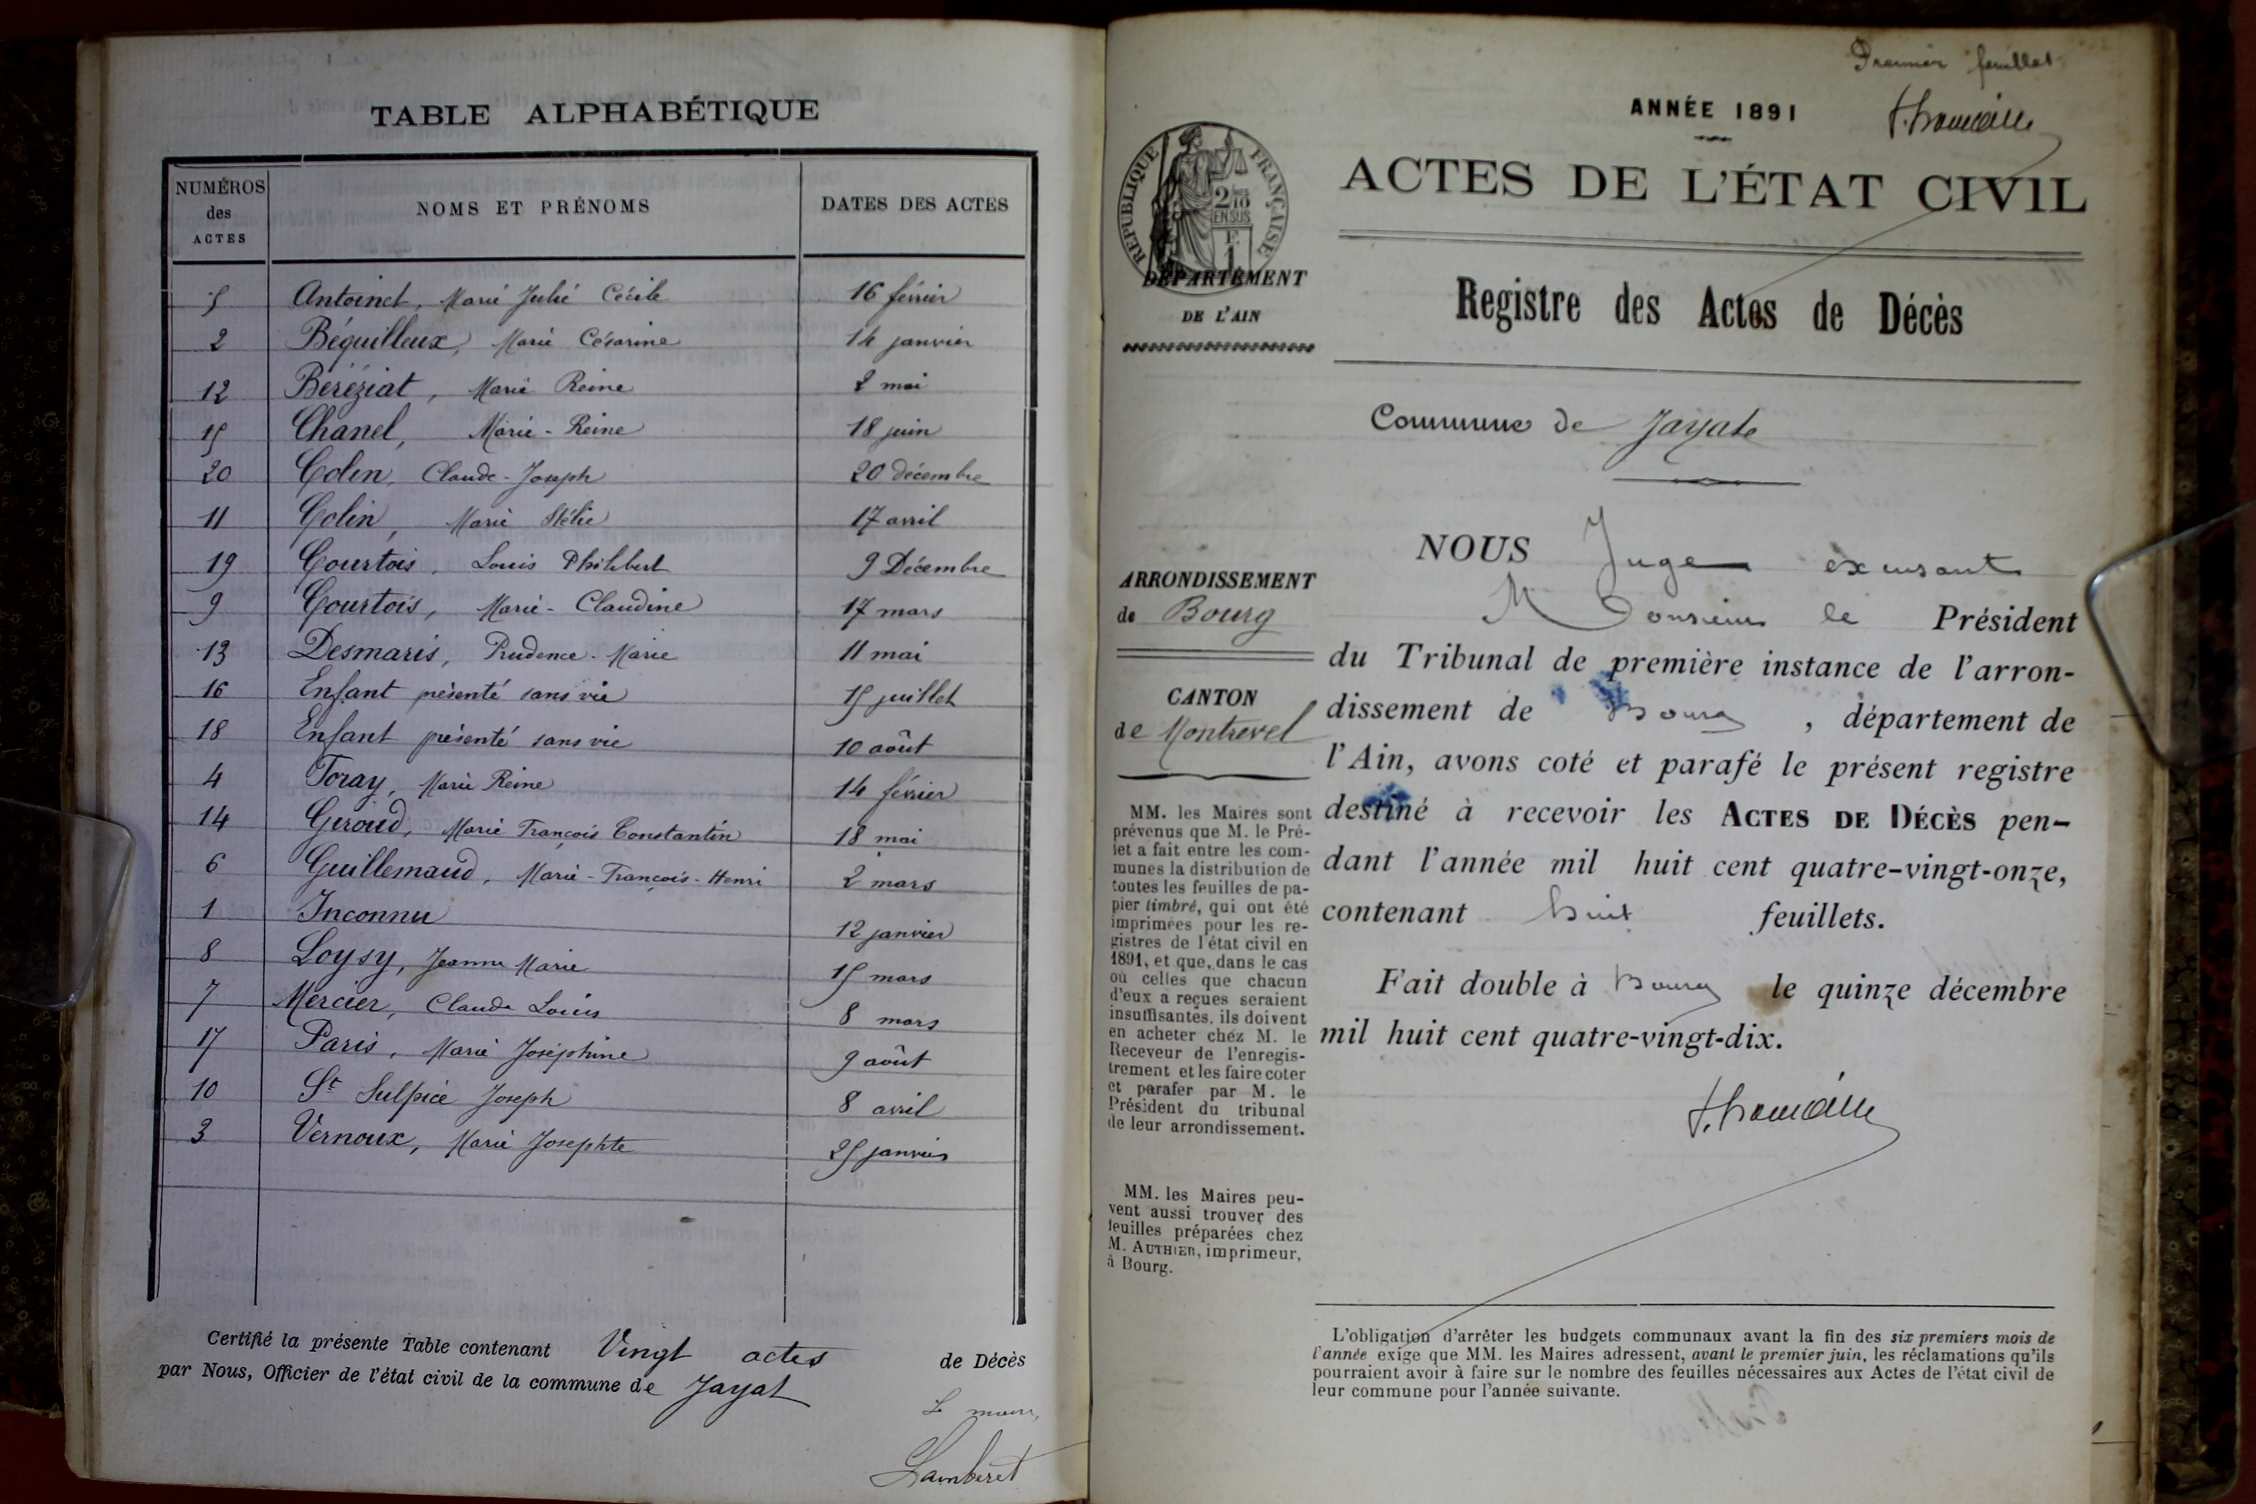 TABLE ALPHABÉTIQUE
NUMÉROS des ACTES | NOMS ET PRÉNOMS | DATES DES ACTES
5 Antoinet, Marie Julie Cécile 16 février
2 Béquilleux, Marie Césarine 14 janvier
12 Béréziat, Marie Reine 2 mai
15 Chanel, Marie-Reine 18 juin
20 Colin, Claude-Joseph 20 décembre
11 Colin, Marie 17 avril
19 Courtois, Louis Philibert 9 Décembre
9 Courtois, Marie-Claudine 17 mars
13 Desmaris, Prudence-Marie 11 mai
16 Enfant présenté sans vie 15 juillet
18 Enfant présenté sans vie 10 août
4 Foray, Marie Reine 14 février
14 Giroud, Marie François Constantin 18 mai
6 Guillemaud, Marie-François-Henri 2 mars
1 Inconnu 12 janvier
8 Loysy, Jeanne Marie 15 mars
7 Mercier, Claude Louis 8 mars
17 Paris, Marie Joséphine 9 août
10 St Sulpice Joseph 8 avril
3 Vernoux, Marie Josephte 25 janvier
Certifié la présente Table contenant Vingt actes de Décès
par Nous, Officier de l'état civil de la commune de Jayat
Le maire,
Lambert
Premier feuillet
ANNÉE 1891
ACTES DE L'ÉTAT CIVIL
RÉPUBLIQUE FRANÇAISE
2/10 EN SUS
DÉPARTEMENT
DE L'AIN
Registre des Actes de Décès
Commune de Jayat
ARRONDISSEMENT
de Bourg
CANTON
de Montrevel
MM. les Maires sont
prévenus que M. le Pré-
fet a fait entre les com-
munes la distribution de
toutes les feuilles de pa-
pier timbré, qui ont été
imprimées pour les re-
gistres de l'état civil en
1891, et que, dans le cas
où celles que chacun
d'eux a reçues seraient
insuffisantes, ils doivent
en acheter chez M. le
Receveur de l'enregis-
trement et les faire coter
et parafer par M. le
Président du tribunal
de leur arrondissement.
MM. les Maires peu-
vent aussi trouver des
feuilles préparées chez
M. AUTHIER, imprimeur,
à Bourg.
NOUS Juge excusant
Monsieur le Président
du Tribunal de première instance de l'arron-
dissement de Bourg, département de
l'Ain, avons coté et parafé le présent registre
destiné à recevoir les ACTES DE DÉCÈS pen-
dant l'année mil huit cent quatre-vingt-onze,
contenant huit feuillets.
Fait double à Bourg le quinze décembre
mil huit cent quatre-vingt-dix.
L'obligation d'arrêter les budgets communaux avant la fin des six premiers mois de
l'année exige que MM. les Maires adressent, avant le premier juin, les réclamations qu'ils
pourraient avoir à faire sur le nombre des feuilles nécessaires aux Actes de l'état civil de
leur commune pour l'année suivante.